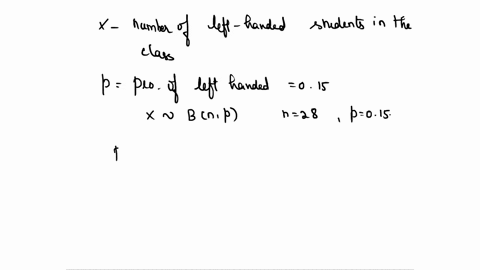 x – number of left-handed students in the
class
p = pro. of left handed = 0.15
x ~ B(n,p) n=28 , p=0.15